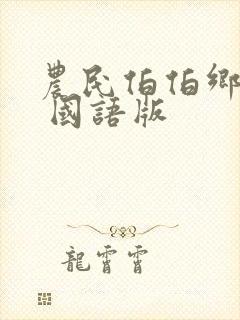 農民伯伯鄉
國語版
龍霄霄